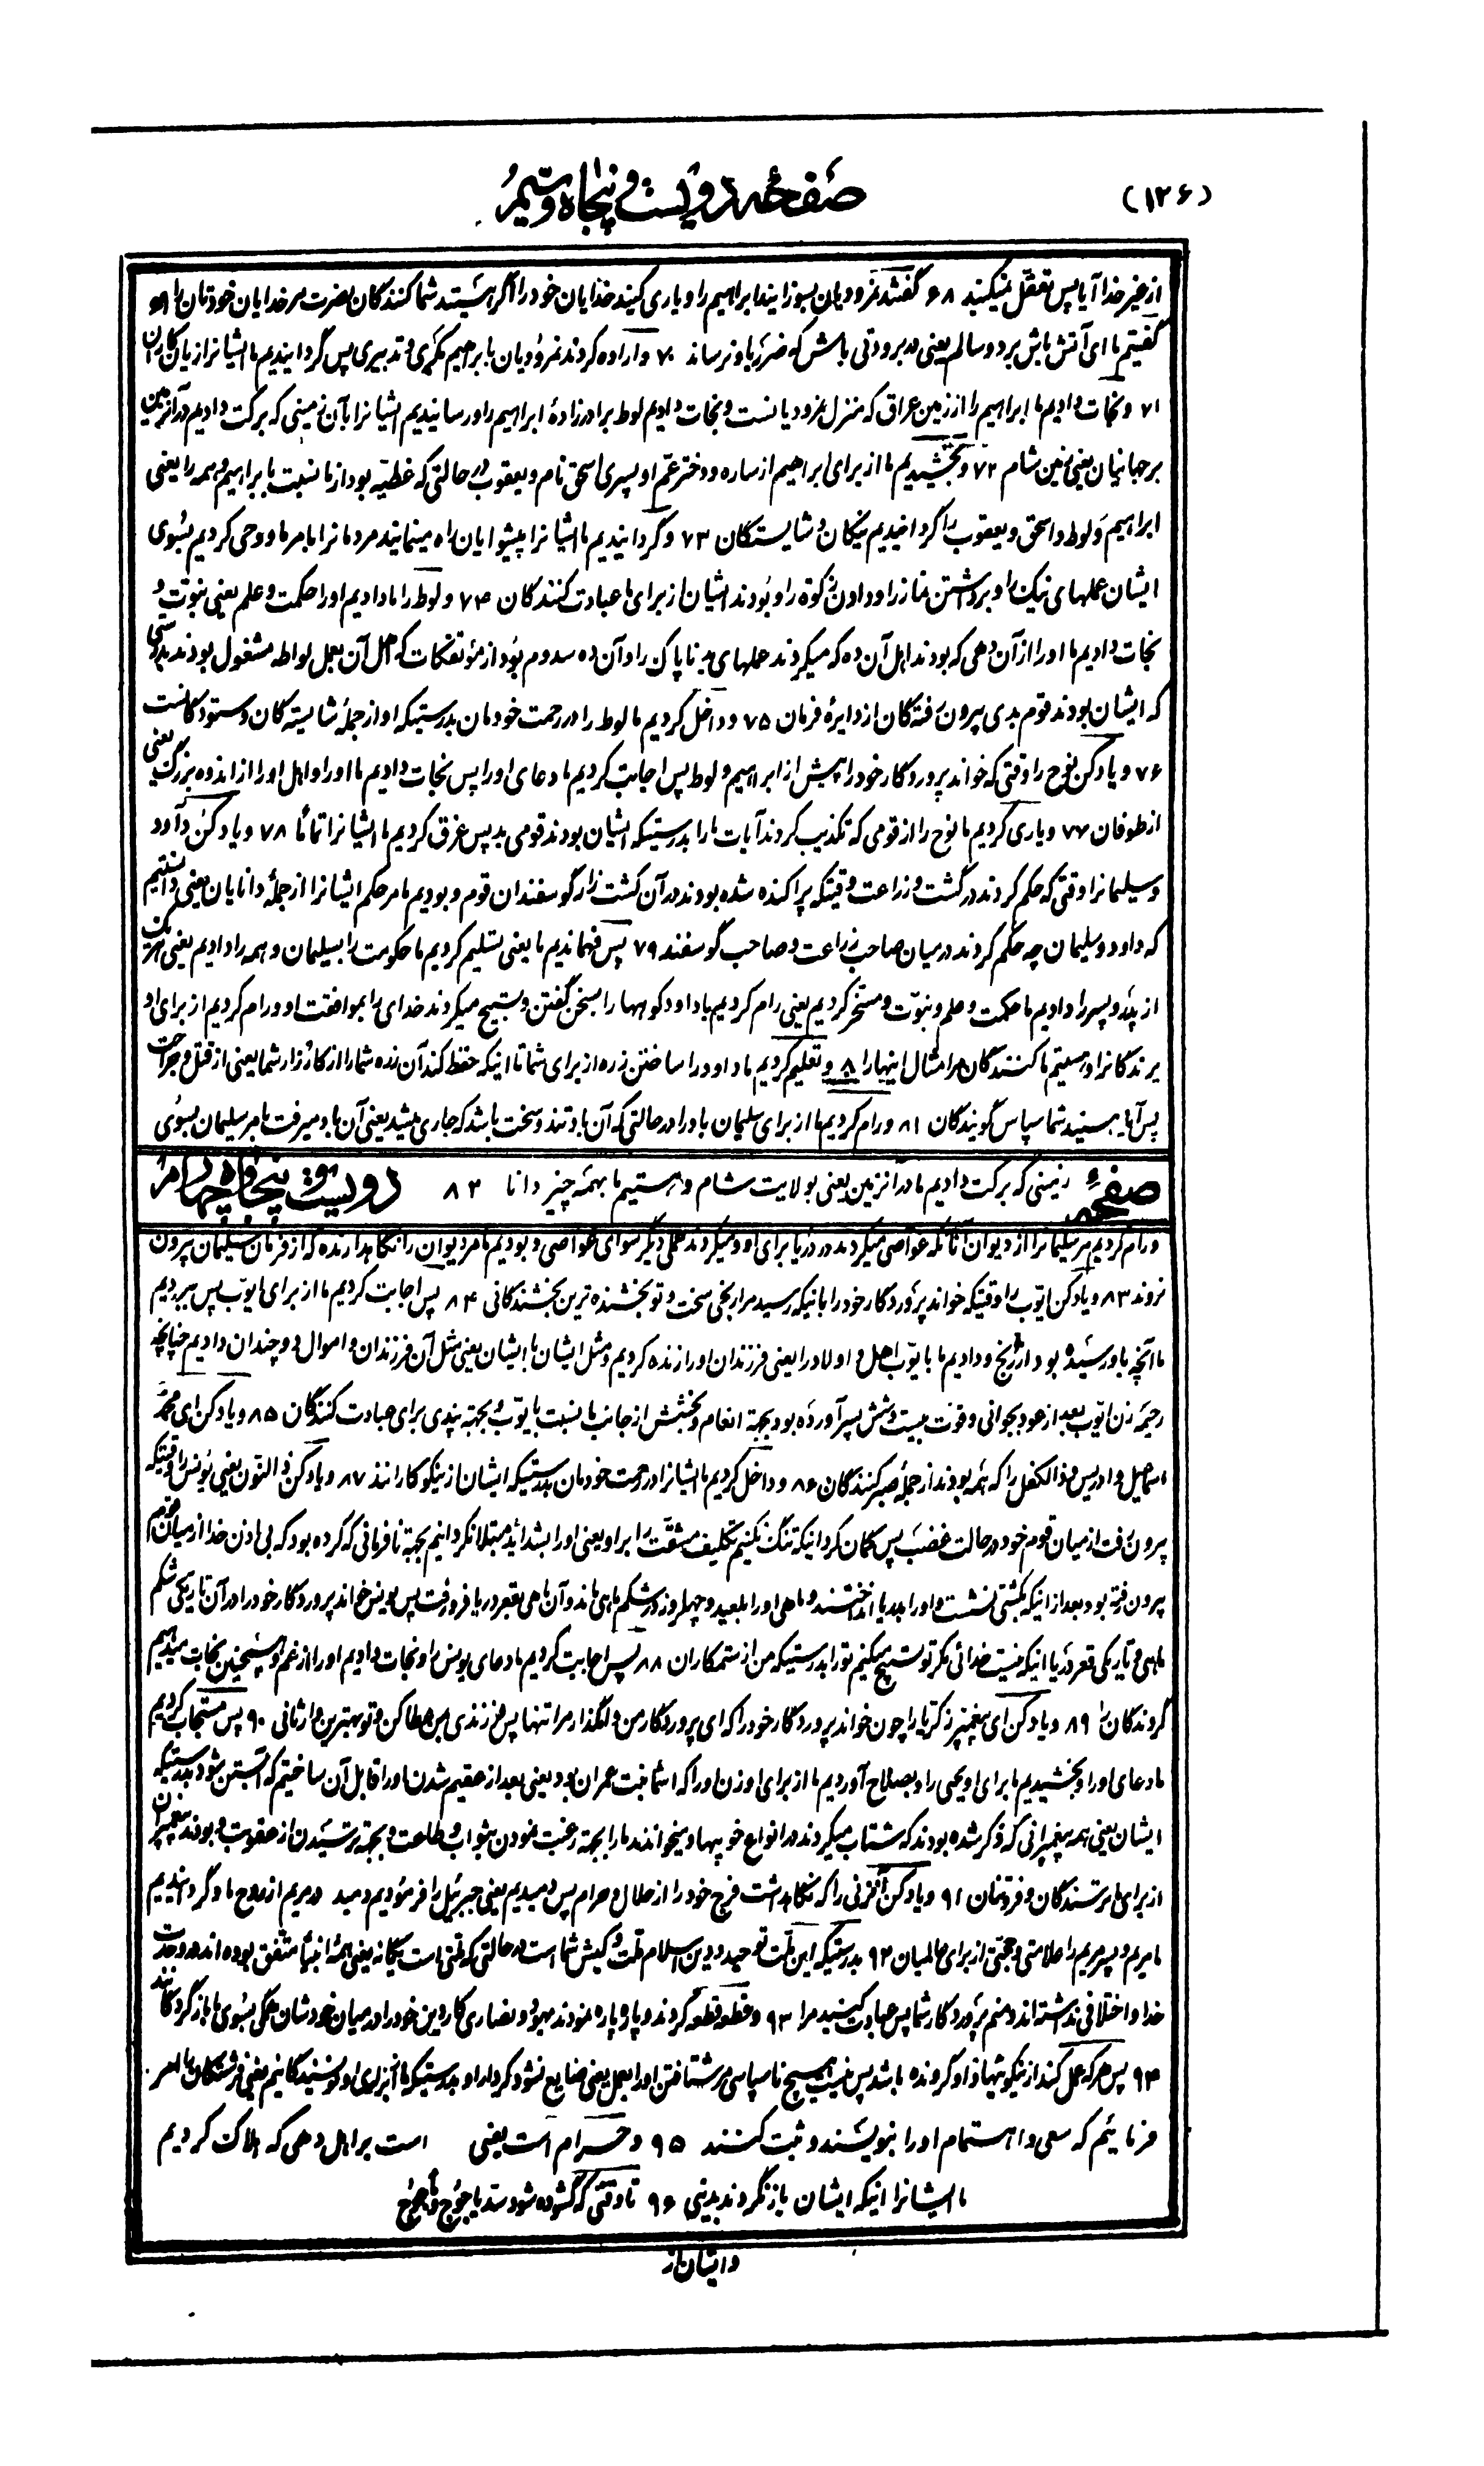 (۱۲۶)
صفحه دویست و پنجاه و سیم
از غیر خدا آیا پس تعقل نمیکنید ۶۸ گفتند نمرودیان بسوزانید ابراهیم را و یاری کنید خدایان خود را اگر هستید شما کنندگان نصرت مر خدایان خودتان را ۶۹
گفتیم ما ای آتش باش برد و سالم یعنی ببرودتی باش که ضرر باو نرساند ۷۰ و اراده کردند نمرودیان با براهیم مکری و تدبیری پس گردانیدیم ما ایشانرا زیان کاران
۷۱ و نجات دادیم ما ابراهیم را از زمین عراق که منزل نمرودیانست و نجات دادیم لوط برادرزادهٔ ابراهیم را و رسانیدیم ایشانرا بآن زمینی که برکت دادیم در آنزمین
بر جهانیان یعنی زمین شام ۷۲ و بخشیدیم ما از برای ابراهیم از ساره و دختر عم او پسری اسحق نام و یعقوب در حالتی که عطیه بود از ما نسبت با براهیم و همه را یعنی
ابراهیم و لوط و اسحق و یعقوب را گردانیدیم نیکان و شایستگان ۷۳ و گردانیدیم ما ایشانرا پیشوایان راه مینمایند مردمانرا بامر ما و وحی کردیم بسوی
ایشان عملهای نیک را و برداشتن نماز را و دادن زکوة را و بودند ایشان از برای ما عبادت کنندگان ۷۴ و لوط را ما دادیم او را حکمت و علم یعنی نبوت و
نجات دادیم ما او را از آن دهی که بودند اهل آن ده که میکردند عملهای ناپاک را و آن ده سدوم بود از مؤتفکات که اهل آن بعمل لواطه مشغول بودند بدرستی
که ایشان بودند قوم بدی بیرون رفتگان از دایرهٔ فرمان ۷۵ و داخل کردیم ما لوط را در رحمت خودمان بدرستیکه او از جملهٔ شایسته کان و ستودگانست
۷۶ و یاد کن نوح را وقتی که خواند پروردگار خود را پیش از ابراهیم و لوط پس اجابت کردیم ما دعای او را پس نجات دادیم ما او را و اهل او را از اندوه بزرگ یعنی
از طوفان ۷۷ و یاری کردیم ما نوح را از قومی که تکذیب کردند آیات ما را بدرستیکه ایشان بودند قومی بد پس غرق کردیم ما ایشانرا تماما ۷۸ و یاد کن داود
و سلیمانرا وقتی که حکم کردند در گشت و زراعت وقتیکه پراکنده شده بودند در آن کشت زار گوسفندان قوم و بودیم ما مر حکم ایشانرا از جملهٔ دانایان یعنی دانستیم
که داود و سلیمان چه حکم کردند در میان صاحب زراعت و صاحب گوسفند ۷۹ پس فهماندیم ما یعنی تسلیم کردیم ما حکومت را بسلیمان و همه را دادیم یعنی هر یک
از پدر و پسر را دادیم ما حکمت و علم و نبوت و مسخر کردیم یعنی رام کردیم با داود کوهها را بسخن گفتن و تسبیح میکردند خدای را بموافقت او و رام کردیم از برای او
پرندگانرا و هستیم ما کنندگان امثال اینها را ۸۰ و تعلیم کردیم ما داود را ساختن زره از برای شما تا اینکه حفظ کند آن زره شما را از کارزار شما یعنی از قتل و جراحت
پس آیا هستید شما سپاس گویندگان ۸۱ و رام کردیم ما از برای سلیمان باد را در حالتی که آن باد تند و سخت باشد که جاری میشد یعنی آن باد میرفت بامر سلیمان بسوی
صفحهٔ زمینی که برکت دادیم ما در آنزمین یعنی بولایت شام و هستیم ما بهمه چیز دانا ۸۲ دویست و پنجاه و چهارم
و رام کردیم مر سلیمانرا از دیوان آنانکه غواصی میکردند در دریا برای او و میکردند عملی دیگر سوای غواصی و بودیم ما مر دیوان را نگاهدارنده که از فرمان سلیمان بیرون
نروند ۸۳ و یاد کن ایوب را وقتیکه خواند پروردگار خود را بانیکه رسید مرا رنجی سخت و تو بخشنده ترین بخشندگانی ۸۴ پس اجابت کردیم ما از برای ایوب پس ببردیم
ما آنچه باو رسیده بود از رنج و دادیم ما بایوب اهل و اولاد را یعنی فرزندان او را زنده کردیم و مثل ایشان با ایشان یعنی مثل آن فرزندان و اموال دو چندان دادیم چنانچه
رحیمه زن ایوب بعد از عود بجوانی و قوت بیست و شش پسر آورده بود بجهة انعام و بخشش از جانب ما نسبت بایوب و بجهة پندی برای عبادت کنندگان ۸۵ و یاد کن ای محمد
اسمعیل و ادریس و ذالکفل را که همه بودند از جملهٔ صبر کنندگان ۸۶ و داخل کردیم ما ایشانرا در رحمت خودمان بدرستیکه ایشان از نیکوکارانند ۸۷ و یاد کن ذالنون یعنی یونس را وقتیکه
بیرون رفت از میان قوم خود در حالت غضب پس گمان کرد اینکه تنگ نکنیم تکلیف مشقت را بر او یعنی او را بشداید مبتلا نگردانیم بجهة نافرمانی که کرده بود که بی اذن خدا از میان قوم
بیرون رفته بود بعد از اینکه بکشتی نشست و او را بدریا انداختند و ماهی او را بلعید و چهل روز در شکم ماهی ماند و آن ماهی بقعر دریا فرو رفت پس یونس خواند پروردگار خود را در آن تاریکی شکم
ماهی و تاریکی قعر دریا اینکه نیست خدائی مگر تو تسبیح میکنیم تو را بدرستیکه من از ستمکاران ۸۸ پس اجابت کردیم ما دعای یونس را و نجات دادیم او را از غم و همچنین نجات میدهیم
گروندگان را ۸۹ و یاد کن ای پیغمبر زکریا را چون خواند پروردگار خود را که ای پروردگار من وامگذار مرا تنها پس فرزندی بمن عطا کن و تو بهترین وارثانی ۹۰ پس مستجاب کردیم
ما دعای او را و بخشیدیم ما برای او یحیی را و بصلاح آوردیم ما از برای او زن او را که بنت عمران بود یعنی بعد از عقیم شدن او را قابل آن ساختیم که آبستن شود بدرستیکه
ایشان یعنی همه پیغمبرانی که ذکر شده بودند که شتاب میکردند در انواع خوبیها و میخواندند ما را بجهة رغبت نمودن بثواب و طاعت و بجهة ترسیدن از عقوبت و بودند پیغمبران
از برای ما ترسندگان و فروتنان ۹۱ و یاد کن آنزنی را که نگاهداشت فرج خود را از حلال و حرام پس دمیدیم یعنی جبرئیل را فرمودیم دمید در مریم از روح ما و گردانیدیم
ما مریم و پسر مریم را علامتی و حجتی از برای عالمیان ۹۲ بدرستیکه این ملت توحید و دین اسلام ملت و کیش شما است در حالتی که ملتی است یگانه یعنی همهٔ انبیا متفق بوده اند در وحدت
خدا و اختلافی نداشته اند و منم پروردگار شما پس عبادت کنید مرا ۹۳ و قطعه قطعه کردند و پاره پاره نمودند یهود و نصاری کار دین خود را در میان خودشان همگی بسوی ما باز گردنده اند
۹۴ پس هر که عمل کند از نیکوئیها و او گرونده باشد پس نیست هیچ ناسپاسی مر شتافتن او را بعمل یعنی ضایع نشود کردار او و بدرستیکه ما از برای او نویسندگانیم یعنی فرشتگان را امر
فرمائیم که سعی و اهتمام او را بنویسند و ثبت کنند ۹۵ و حرام است یعنی است بر اهل دهی که هلاک کردیم
ما ایشانرا اینکه ایشان باز نگردند بدنیا ۹۶ تا وقتی که گشوده شود سد یاجوج و ماجوج
و ایشان از